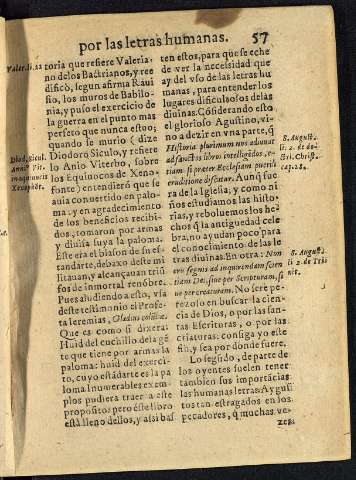 por las letras humanas. 57
toria que refiere Valeria-
no de los Bactrianos, y ree
dificò, segun afirma Raui-
sio, los muros de Babilo-
nia, y puso el exercicio de
la guerra en el punto mas
perfeto que nunca estuo;
quando se murio (dize
Diodoro Siculo, y refiere
lo Anio Viterbo, sobre
los Equiuocos de Xeno-
fonte) entendierõ que se
auia conuertido en palo-
ma; y en agradecimiento
de los beneficios recibi-
dos; tomaron por armas
y diuisa suya la paloma.
Este era el blason de su es-
tandarte, debaxo deste mi
litauan, y alcançauan triũ
fos de inmortal renõbre.
Pues aludiendo a esto, vsa
deste testimonio el Profe-
ta Ieremias, Gladius columbæ.
Que es como si dixera:
Huid del cuchillo de la gẽ
te que tiene por armas la
paloma: huid del exerci-
to, cuyo estãdarte es la pa
loma. Inumerables exem-
plos pudiera traer a este
proposito: pero este libro
està lleno dellos, y assi bas
ten estos, para que se eche
de ver la necesidad que
ay del vso de las letras hu
manas, para entender los
lugares dificultosos de las
diuinas. Considerãdo esto
el glorioso Agustino, vi-
no a dezir en vna parte, q̃
Historia plurimum nos adiuuat
ad sanctos libros intelligẽdos, e-
tiam si præter Ecclesiam puerili
eruditione discatur. Aunq̃ sue
ra de la Iglesia, y como ni
ños estudiamos las histo-
rias, y reboluemos los he
chos q̃ la antiguedad cele
bra, no ayudan poco para
el conocimiento de las le
tras diuinas. En otra: Non
ero segnis ad inquirendam scien
tiam Dei, siue per Scripturam, si
ue per creaturam. No serè pe-
rezoso en buscar la cien-
cia de Dios, o por las san-
tas Escrituras, o por las
criaturas: consiga yo este
fin, y sea por donde fuere.
Lo segũdo, de parte de
los oyentes suelen tener
tambien sus importãcias
las humanas letras. Ay gus
tos tan estragados en los
pecadores, q̃ muchas ve-
zes
Valer. li. 22
Diod. sicul.
Xenophõt.
S. August.
li. 2. de do-
ctri. Christ.
cap. 28.
S. August
li. 2 de Trin
nit.